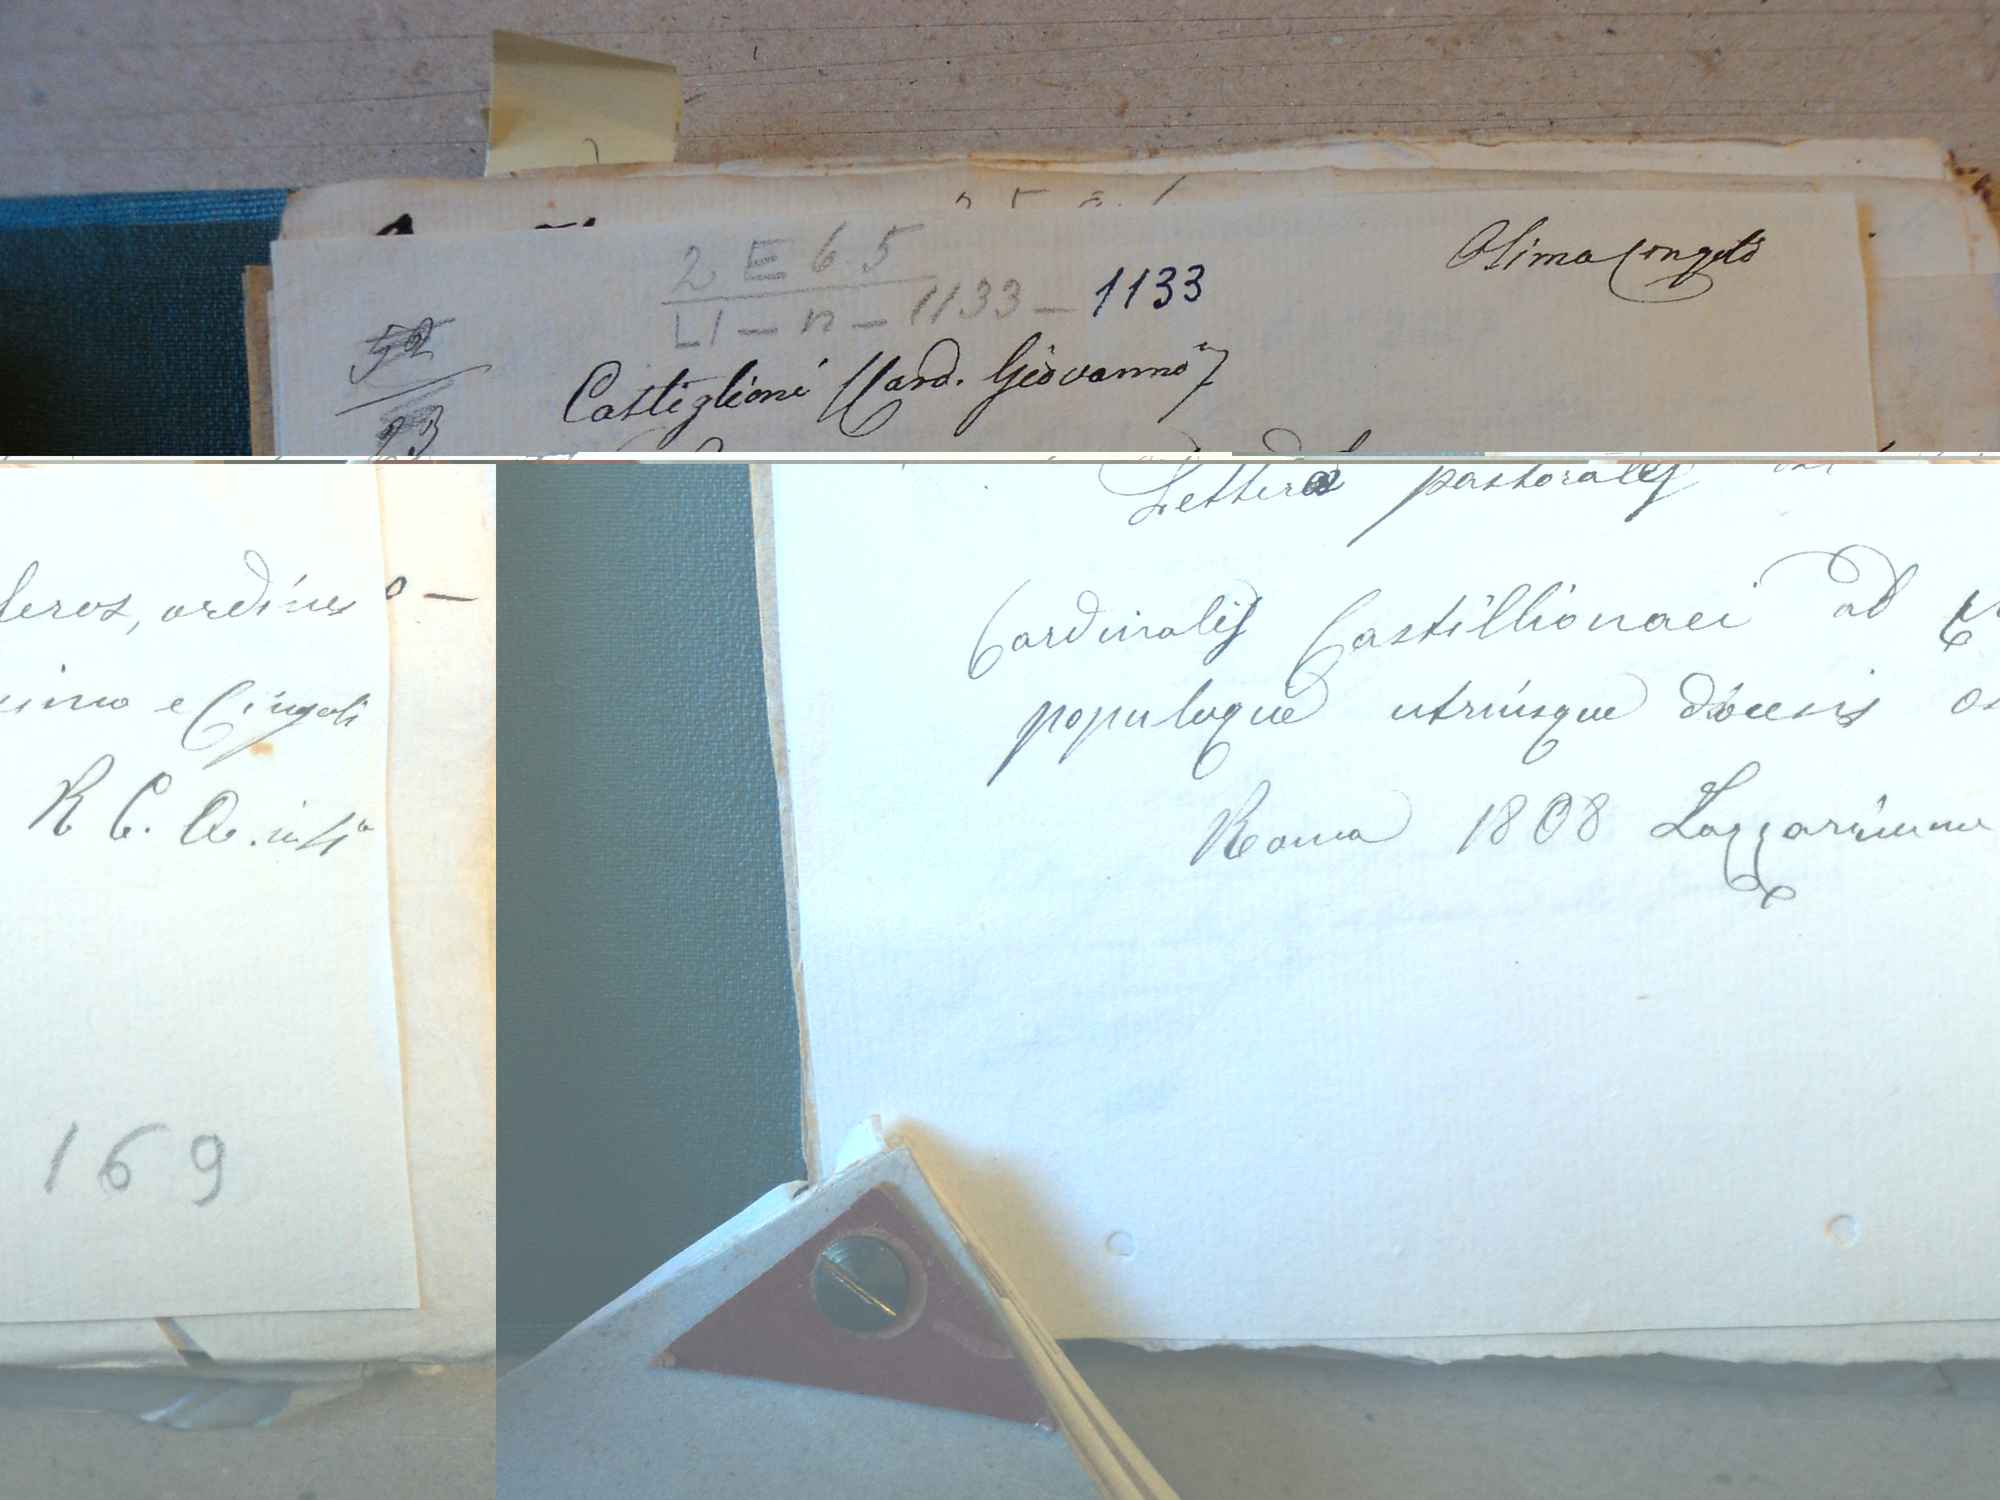 2 E 65
LI - n - 1133 - 1133
Osimo Cingoli
52
23
Castiglioni (Card. Giovanni)
Lettera pastorales
Cardinalis Castillionaei ad
populoque utriusque diocesis
Roma 1808 Lazzarinum
leros, ordines
simo e Cingoli
R. C. A. in 4°
169